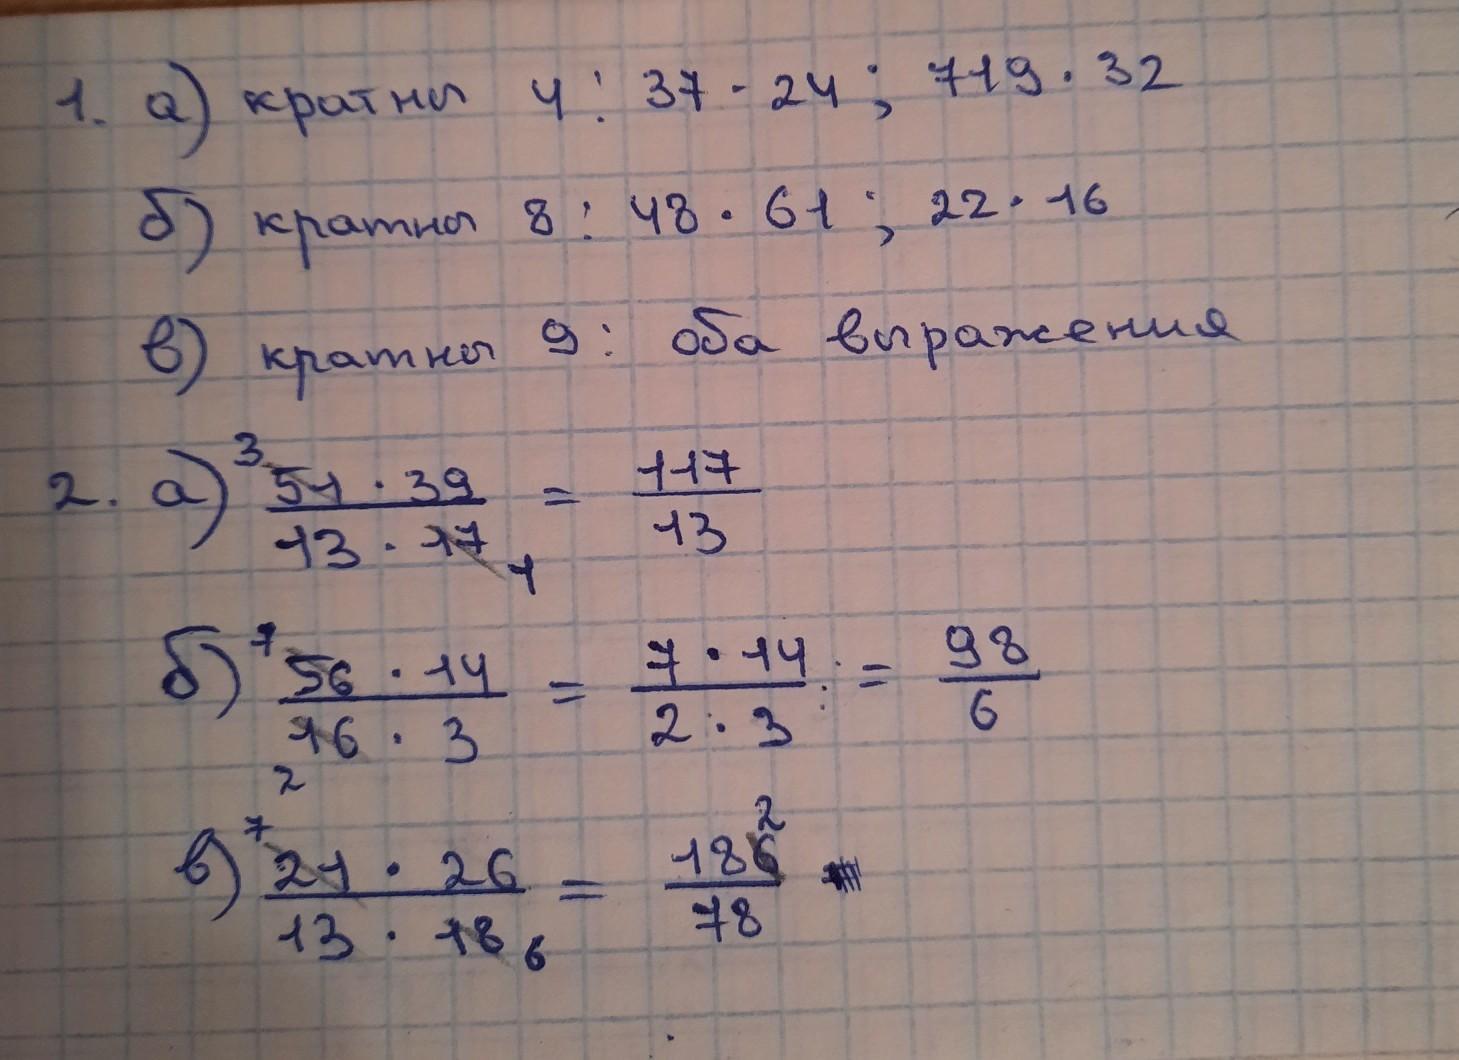 1. а) кратны 4: 37 · 24; 719 · 32
б) кратны 8: 48 · 61; 22 · 16
в) кратны 9: оба выражения
2. а) ³ 51 · 39 / 13 · 17 ₁ = 117 / 13
б) ⁷ 56 · 14 / 16 · 3 ₂ = 7 · 14 / 2 · 3 = 98 / 6
в) ⁷ 21 · 26 / 13 · 18 ₆ = 186 ² / 78